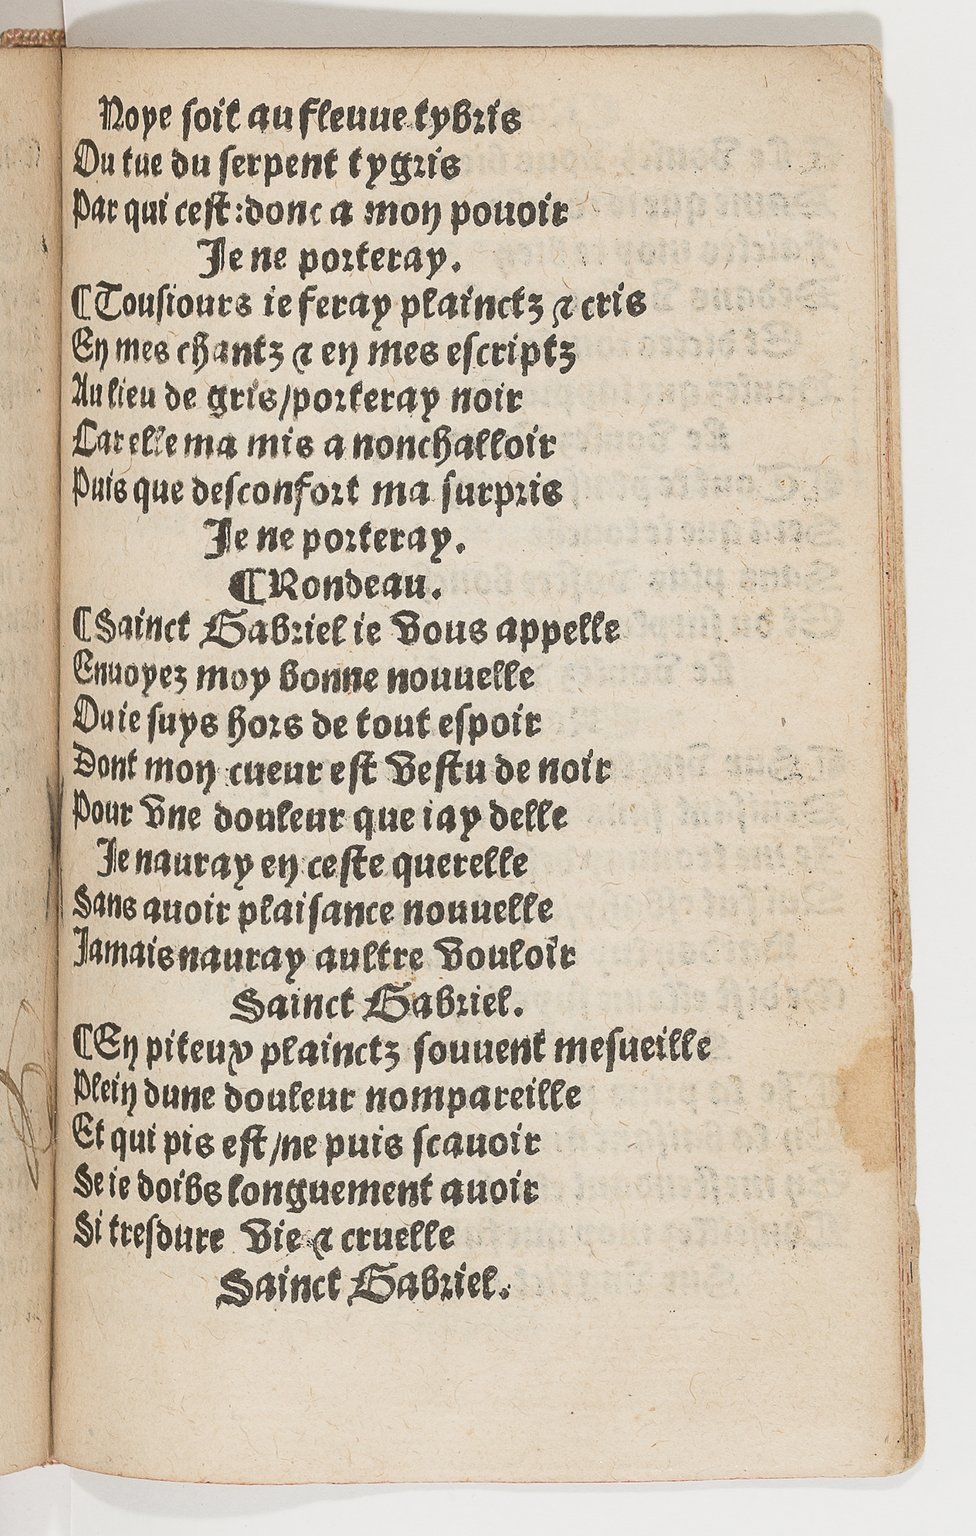 Noye soit au fleuue tybris
Ou tue du serpent tygris
Par qui cest:donc a mon pouoir
Je ne porteray.
¶Tousiours ie feray plainctz ⁊ cris
En mes chantz ⁊ en mes escriptz
Au lieu de gris/porteray noir
Car elle ma mis a nonchalloir
Puis que desconfort ma surpris
Je ne porteray.
¶Rondeau.
¶Sainct Gabriel ie vous appelle
Enuoyez moy bonne nouuelle
Ou ie suys hors de tout espoir
Dont mon cueur est vestu de noir
Pour vne douleur que iay delle
Je nauray en ceste querelle
Sans auoir plaisance nouuelle
Jamais nauray aultre vouloir
Sainct Gabriel.
¶En piteux plainctz souuent mesueille
Plein dune douleur nompareille
Et qui pis est/ne puis scauoir
Se ie doibs longuement auoir
Si tresdure vie ⁊ cruelle
Sainct Gabriel.